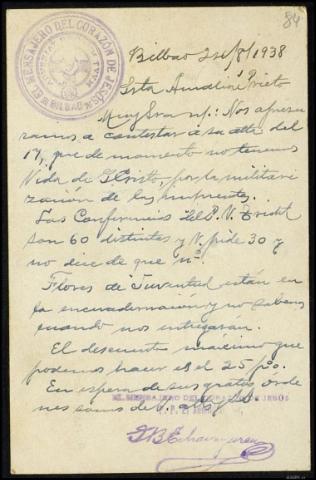 84
EL MENSAJERO DEL CORAZÓN DE JESÚS
BILBAO
Bilbao 24/8/1938
Srta Amalia Prieto
Muy Sra n/: Nos apresu
ramos a contestar a su atta del
17, que de momento no tenemos
Vida de por la militari
zación de las imprentas.
Las Conferencias del P. V.
son 60 distintas y V. pide 30 y
no dice de que nº.
Flores de Juventud están en
la encuadernación y no sabemos
cuando nos entregarán.
El descuento máximo que
podemos hacer es el 25 p%.
En espera de sus gratas órde
nes somos de V.
EL MENSAJERO DEL CORAZÓN DE JESÚS